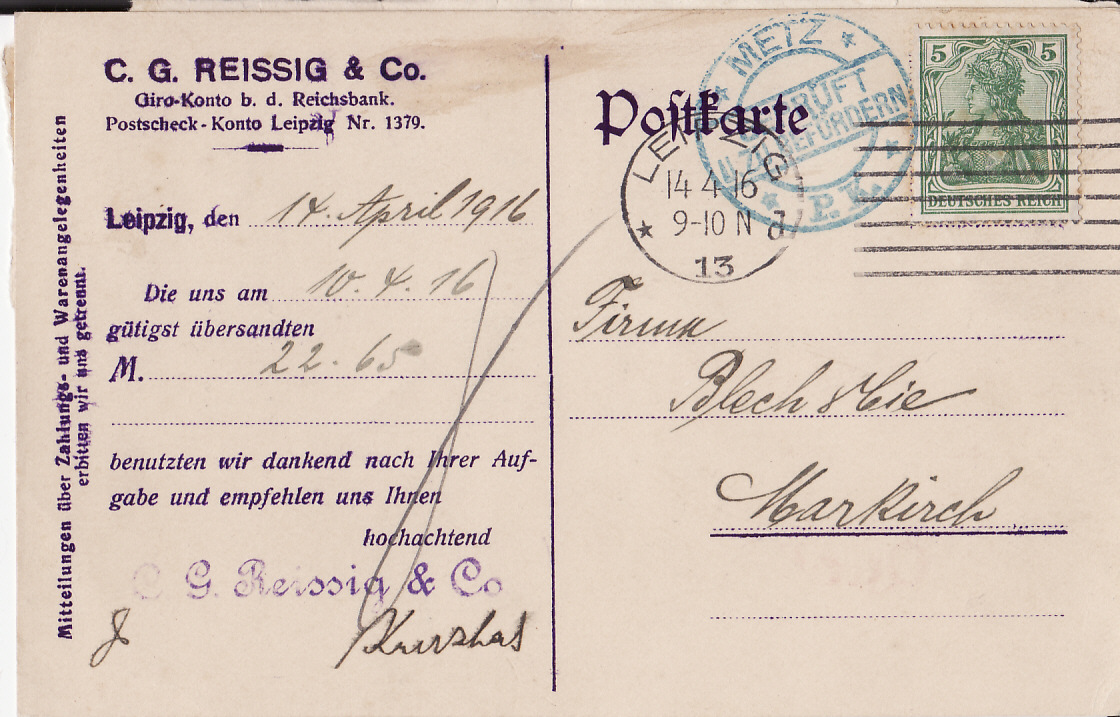 C. G. REISSIG & Co.
Giro-Konto b. d. Reichsbank.
Postscheck-Konto Leipzig Nr. 1379.
Leipzig, den 14. April 1916
Die uns am 10. 4. 16
gütigst übersandten
M. 22. 65
benutzten wir dankend nach Ihrer Auf-
gabe und empfehlen uns Ihnen
hochachtend
C G. Reissig & Co
Mitteilungen über Zahlungs- und Warenangelegenheiten
erbitten wir uns getrennt.
Postkarte
METZ
BEFÖRDERN
P. K.
LEIPZIG
14 4 16
9-10 N
13
5 5
DEUTSCHES REICH
Firma
Blech & Cie
Markirch